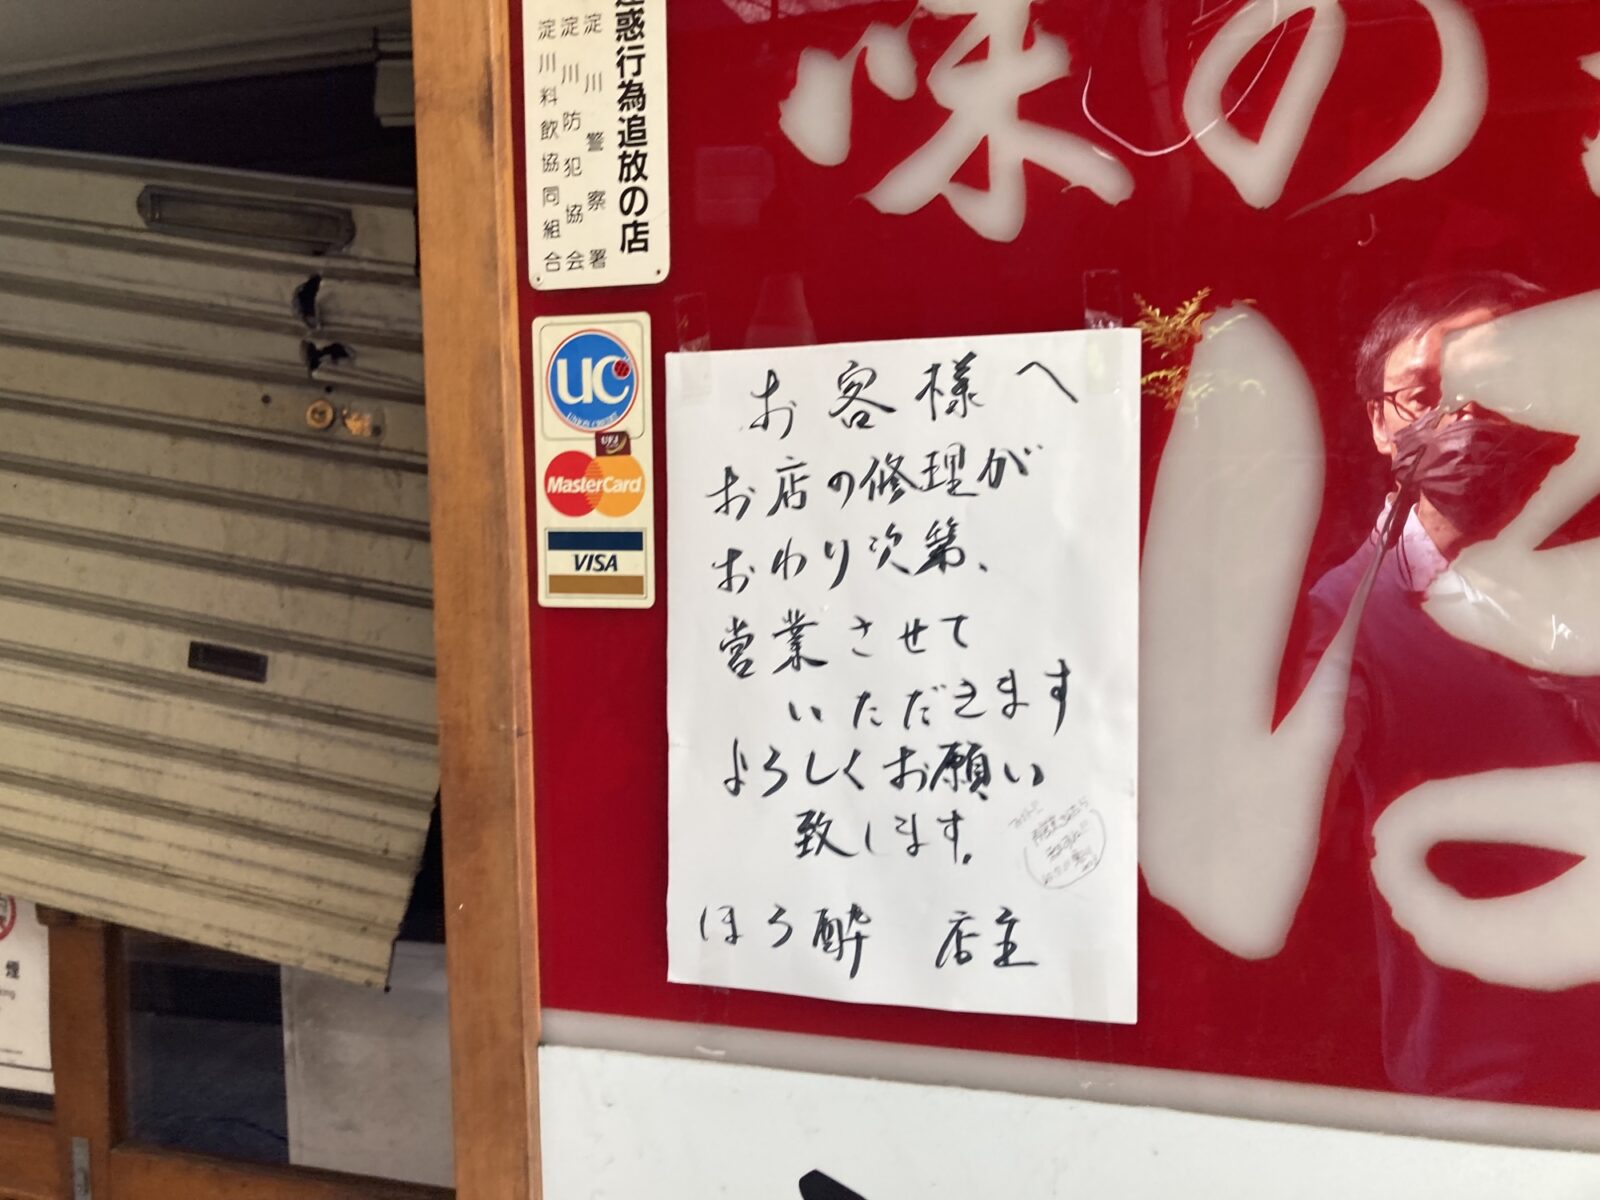 惑行為追放の店
淀川警察署
淀川防犯協会
淀川料飲協同組合
味の
UC
UFJ
MasterCard
VISA
お客様へ
お店の修理が
おわり次第、
営業させて
いただきます
よろしくお願い
致します。
ほろ酔 店主
ほ
煙